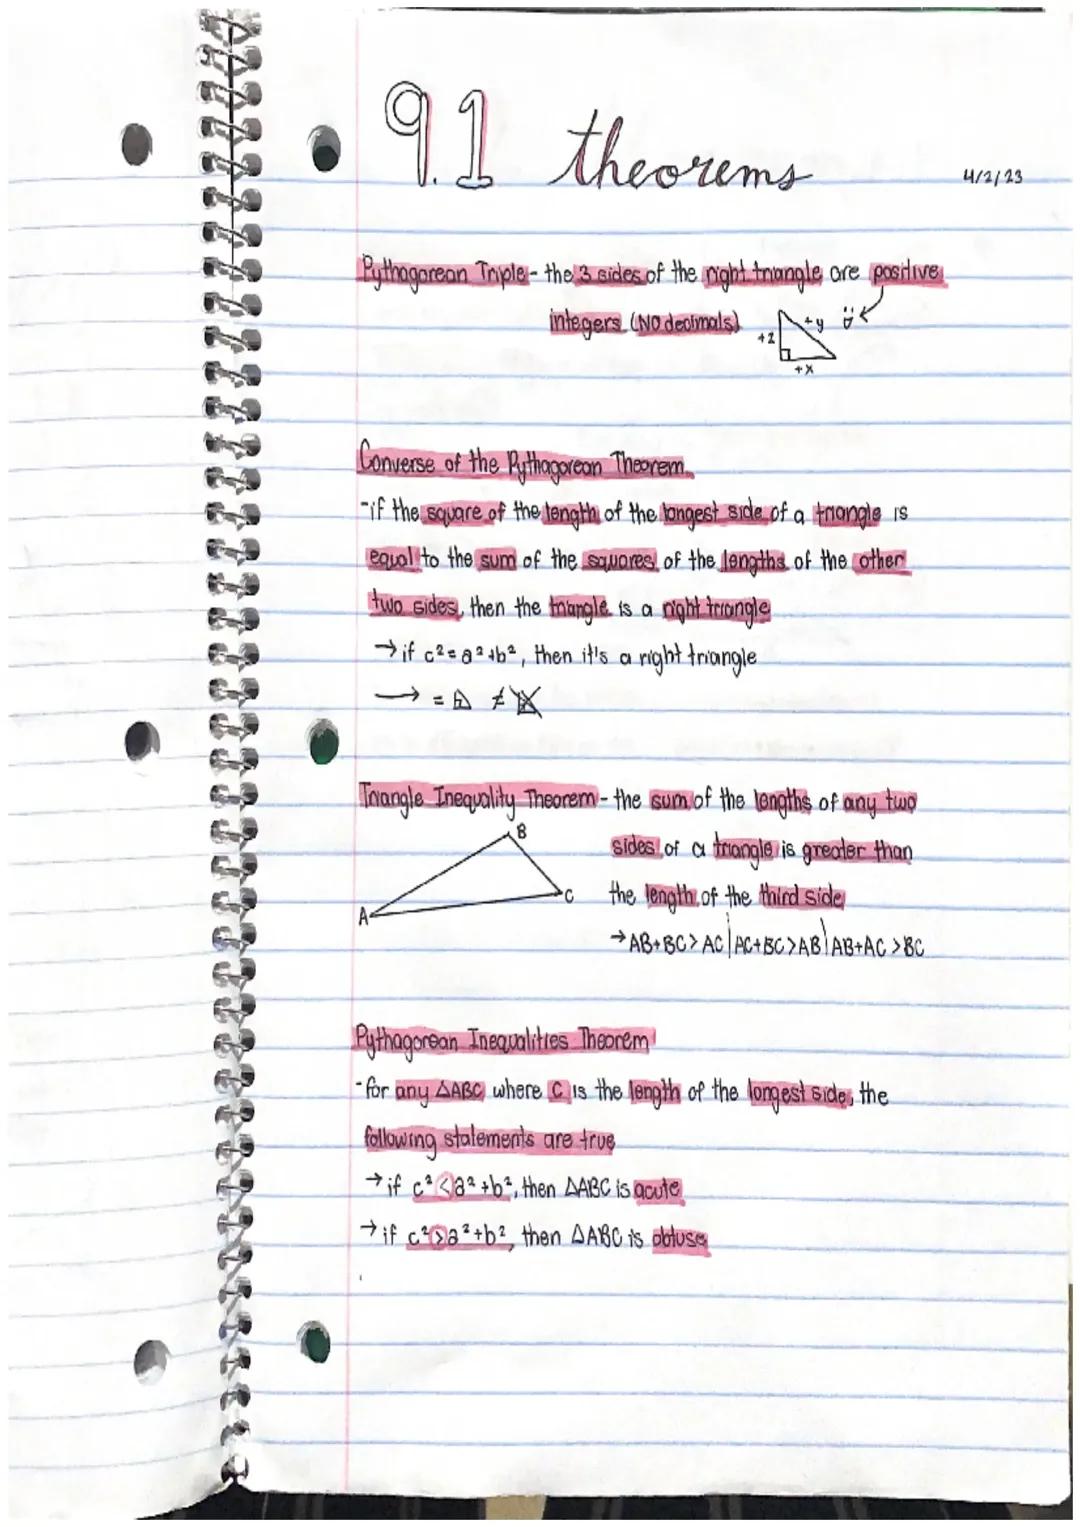 9.1 theorems
4/2/23
Pythagorean Triple - the 3 sides of the right triangle are positive
integers (NO decimals)
+z
+y
+x
Converse of the Pythagorean Theorem
- if the square of the length of the longest side of a triangle is
equal to the sum of the squares of the lengths of the other
two sides, then the triangle is a right triangle
→ if c² = a² + b², then it's a right triangle
→ = ≠
Triangle Inequality Theorem - the sum of the lengths of any two
sides of a triangle is greater than
the length of the third side
A B C
→ AB+BC > AC | AC+BC > AB | AB+AC > BC
Pythagorean Inequalities Theorem
- for any △ABC where C is the length of the longest side, the
following statements are true
→ if c² < a² + b², then △ABC is acute
→ if c² > a² + b², then △ABC is obtuse